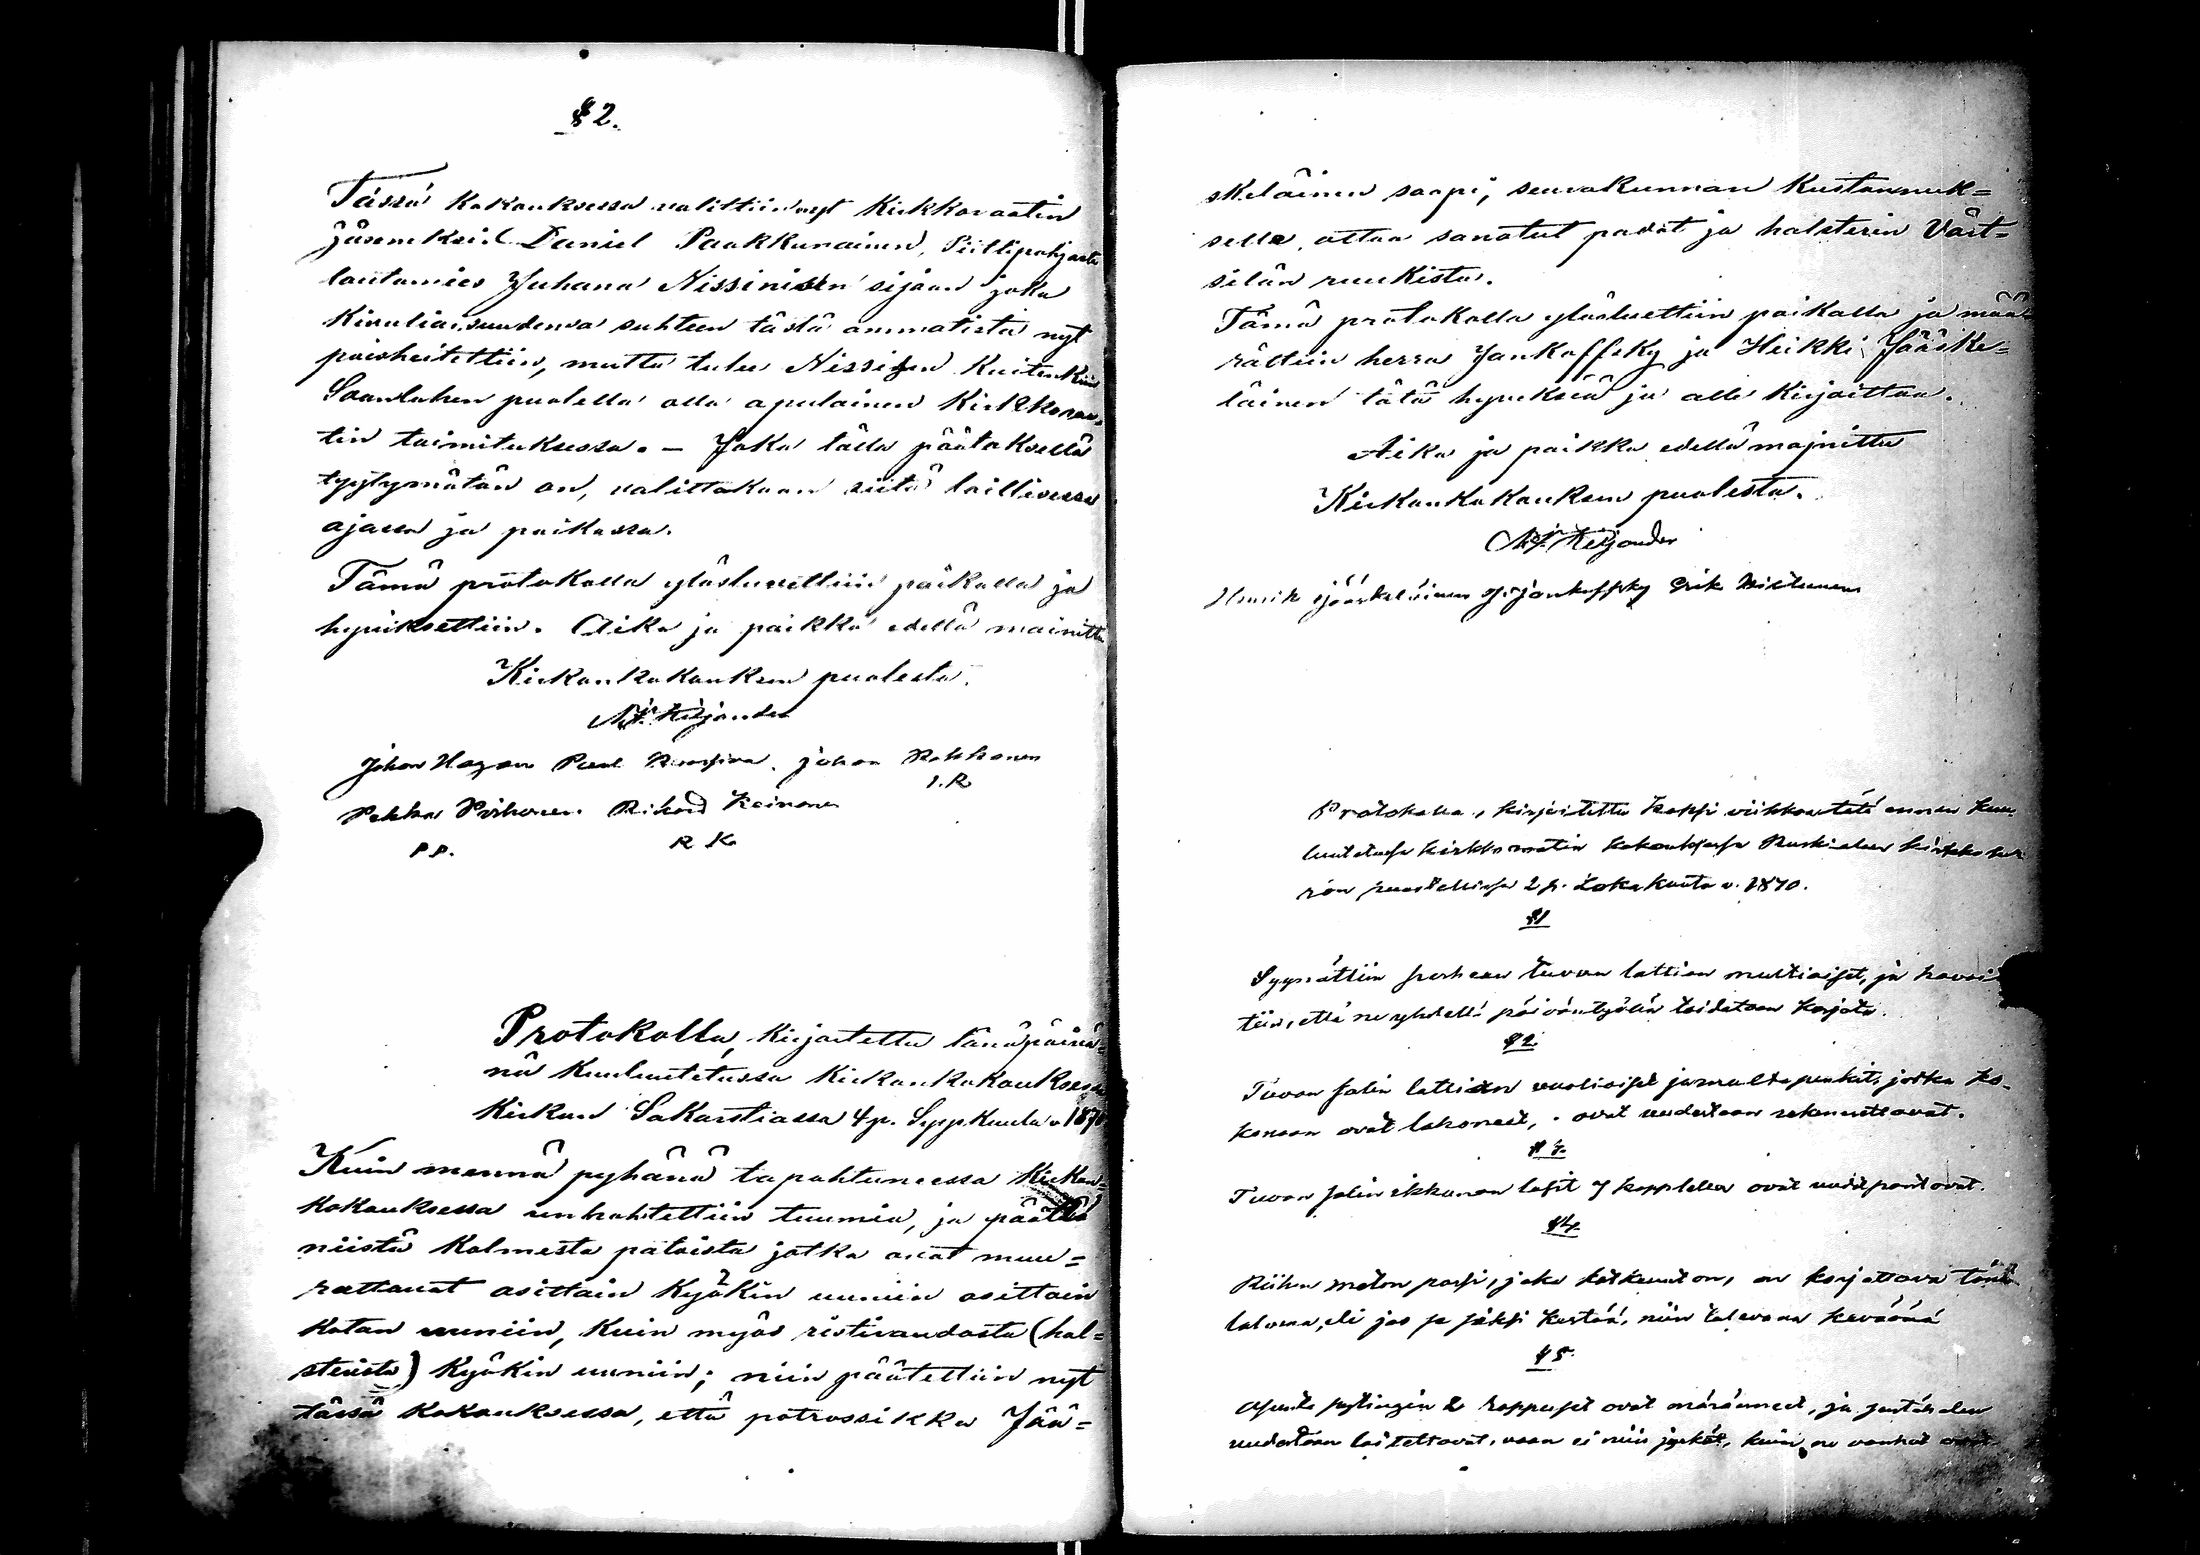 § 2.
Tässä kokouksessa valittiin nyt Kirkkoraatin
jäseneksi Daniel Paakkunainen, Piillipohjasta
lautamies Juhana Nissinisen sijaan joka
kivuliaisuudensa suhteen tästä ammatista nyt
poisheitettiin, mutta tulee Nissinen kuitenkin
Soanlahen puolella olla apulainen Kirkkoraa-
tin toimituksessa. – Joka tällä päätöksellä
tyytymätön on, valittakoon siitä laillisessa
ajassa ja paikassa.
Tämä protokolla ylösluettiin paikalla ja
hyväksettiin. Aika ja paikka edellä mainittu
Kirkonkokouksen puolesta.
Kiljander
Johan Hozan Paul johan Kokkonen
I. R
Pekka Pörhönen Rikard Keinonen
P P. R K
Protokolla, kirjoitettu tänäpäivä=
nä kuuluutetussa Kirkonkokouksessa
Kirkon Sakastiassa 4 p. Syyskuuta v. 1870
Kuin mennä pyhänä tapahtuneessa Kirkon=
kokouksessa unhohtettiin tuumia, ja päättää
niistä kolmesta padoista jotka ovat muu=
rattavat osittain Kyökin uuniin osittain
kotan uuniin, kuin myös ristiraudasta (hal=
sterista) Kyökin uuniin; niin päätettiin nyt
tässä kokouksessa, että potrossikka Jää=
skeläinen saapi, seurakunnan kustannuk=
sella, ottaa sanotut padat ja halsterin Värt=
silän ruukista.
Tämä protokolla ylösluettiin paikalla ja mää-
rättiin herra Jankoffsky ja Heikki Jääske=
läinen tätä hyväksiä ja alle kirjoittaa.
Aika ja paikka edellä majnittu
Kirkonkokouksen puolesta.
Kiljander
Henrik jääskeläinen Jankoffsky Erik
Protokolla, kirjoitettu kaksi viikkoa tätä ennen kuu-
luutetussa kirkkoraatin kokouksessa Ruskealan kirkkoher-
ran puustellissa 2 p. Lokakuuta v. 1870.
§ 1
Syynättiin perheen tuvan lattian multiaiset, ja havait-
tiin, että ne yhdellä päivän työllä taidetaan korjata.
§ 2.
Tuvan salin lattian vuoliaiset ja multapenkit, jotka ko-
konaan ovat lahoneet, ovat uudestaan rakennettavat.
§ 3.
Tuvan salin ikkunan lasit 7 kappaletta ovat uudet pantavat.
§ 4.
Riihen parsi, joka katkennut on, on korjattava tänä
talvena, eli jos se säksi kestää, niin tulevana keväänä
§ 5.
pytingin 2 rappuset ovat märänneet, ja
uudestaan laitettavat, vaan ei niin jyrkät, kuin ne vanhat ovat